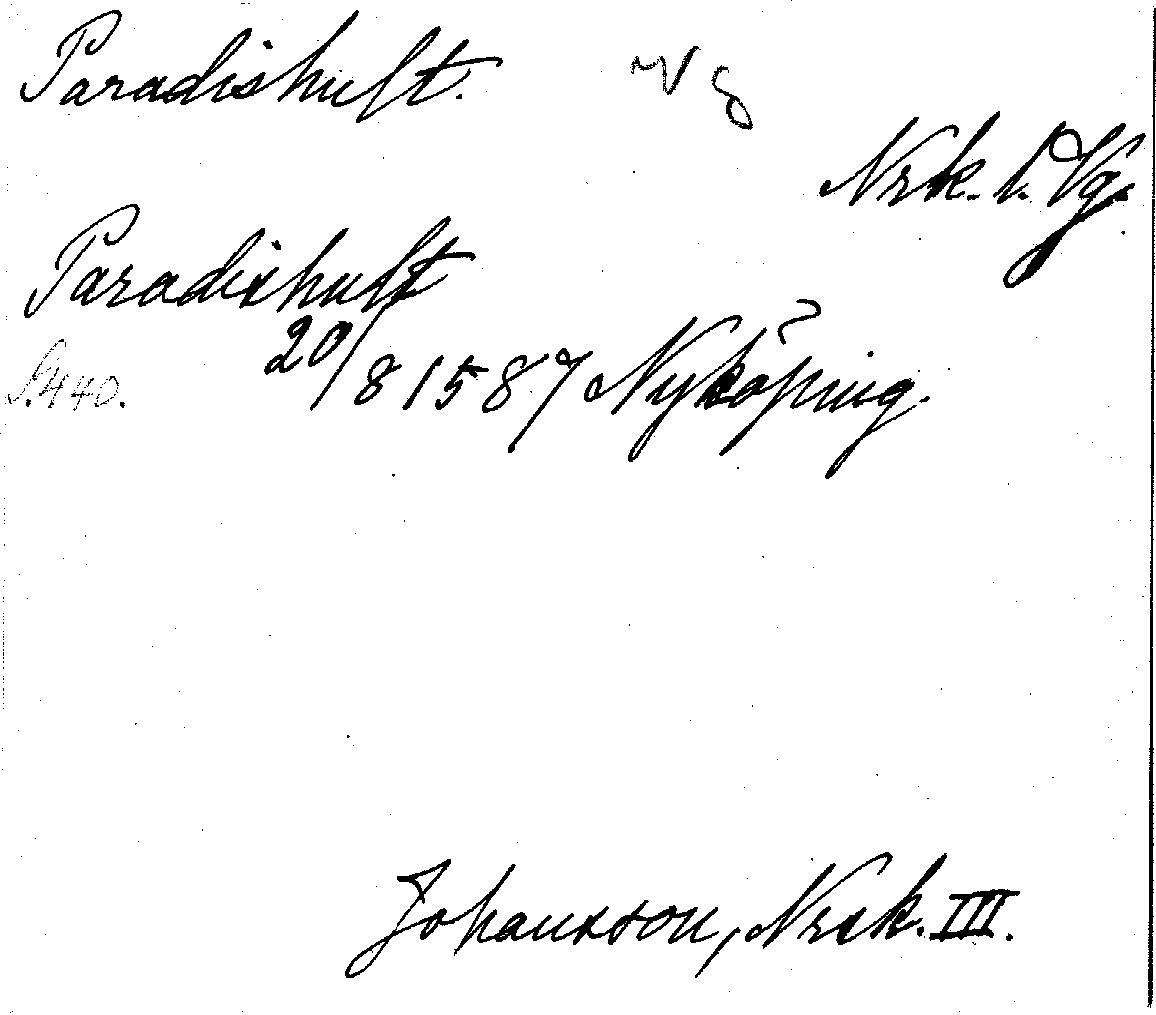 Paradishult. Vg
Nrk. l. Vg.
Paradishult
20/8 1587 Nyköping.
S. 440.
Johansson, Nrsk. III.